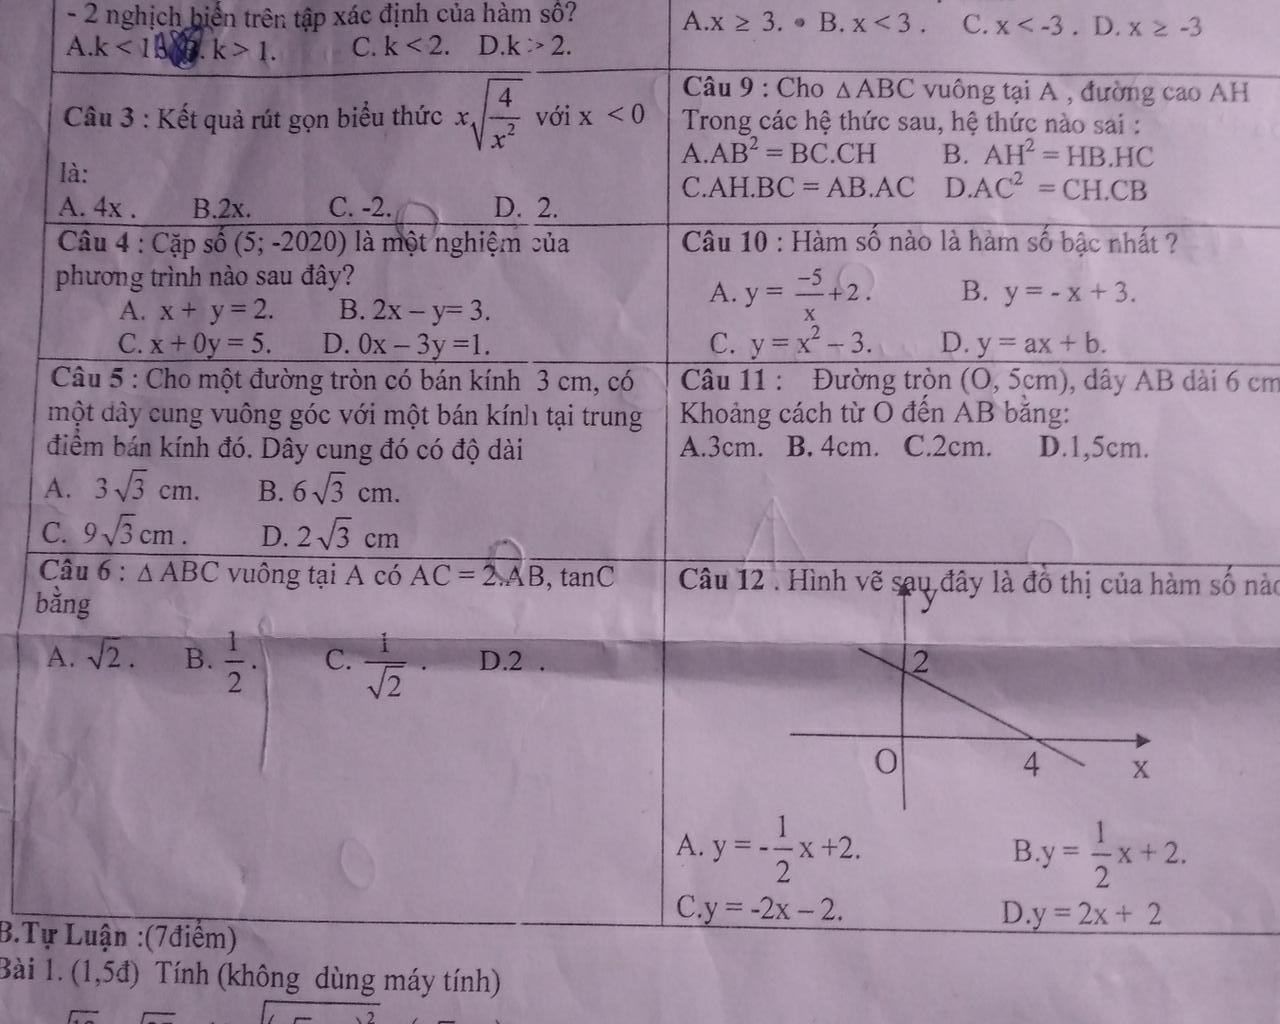 - 2 nghịch biến trên tập xác định của hàm số?
A.k < 1 . k > 1. C. k < 2. D.k > 2.
Câu 3 : Kết quả rút gọn biểu thức x√(4/x²) với x < 0
là:
A. 4x . B.2x. C. -2. D. 2.
Câu 4 : Cặp số (5; -2020) là một nghiệm của
phương trình nào sau đây?
A. x + y = 2. B. 2x – y= 3.
C. x + 0y = 5. D. 0x – 3y =1.
Câu 5 : Cho một đường tròn có bán kính 3 cm, có
một dây cung vuông góc với một bán kính tại trung
điểm bán kính đó. Dây cung đó có độ dài
A. 3√3 cm. B. 6√3 cm.
C. 9√3 cm . D. 2√3 cm
Câu 6 : Δ ABC vuông tại A có AC = 2.AB, tanC
bằng
A. √2 . B. 1/2 . C. 1/√2 . D.2 .
A.x ≥ 3. B. x < 3 . C. x < -3 . D. x ≥ -3
Câu 9 : Cho Δ ABC vuông tại A , đường cao AH
Trong các hệ thức sau, hệ thức nào sai :
A.AB² = BC.CH B. AH² = HB.HC
C.AH.BC = AB.AC D.AC² = CH.CB
Câu 10 : Hàm số nào là hàm số bậc nhất ?
A. y = -5/x +2 . B. y = - x + 3.
C. y = x² – 3. D. y = ax + b.
Câu 11 : Đường tròn (O, 5cm), dây AB dài 6 cm
Khoảng cách từ O đến AB bằng:
A.3cm. B. 4cm. C.2cm. D.1,5cm.
Câu 12 . Hình vẽ sau đây là đồ thị của hàm số nào
y
2
O 4 x
A. y = -1/2 x +2. B.y = 1/2 x + 2.
C.y = -2x – 2. D.y = 2x + 2
B.Tự Luận :(7điểm)
Bài 1. (1,5đ) Tính (không dùng máy tính)